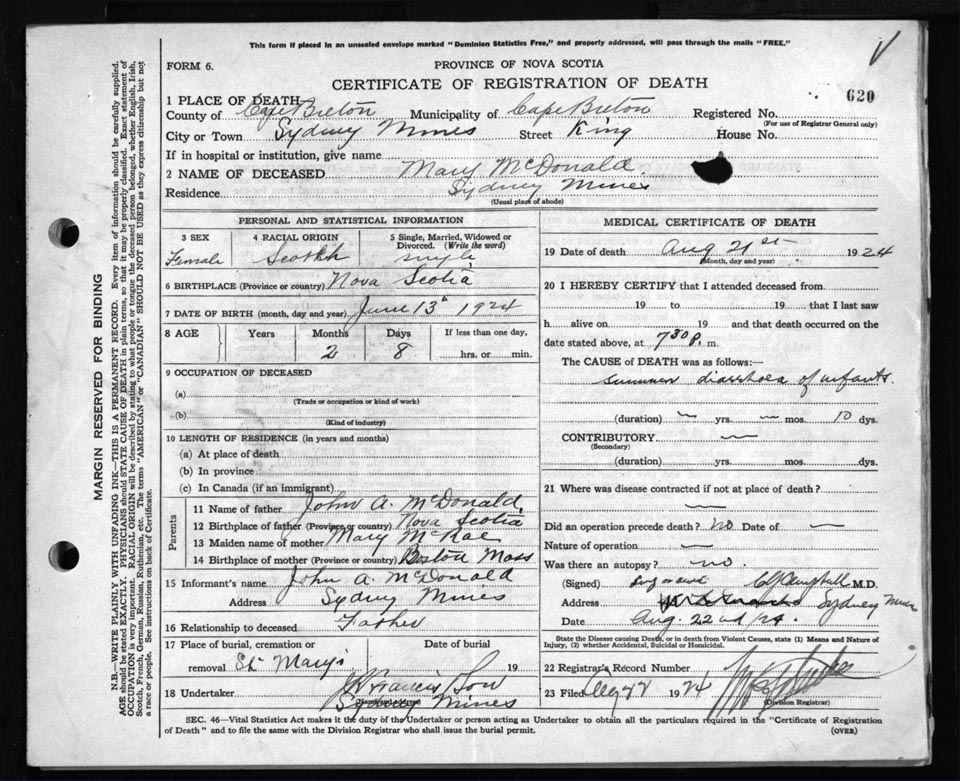 This form if placed in an unsealed envelope marked "Dominion Statistics Free," and properly addressed, will pass through the mails "FREE."
FORM 6.
PROVINCE OF NOVA SCOTIA
CERTIFICATE OF REGISTRATION OF DEATH
620
1 PLACE OF DEATH
County of Cape Breton Municipality of Cape Breton Registered No.
(For use of Registrar General only)
City or Town Sydney Mines Street King House No.
If in hospital or institution, give name
2 NAME OF DECEASED Mary McDonald
Residence Sydney Mines
(Usual place of abode)
PERSONAL AND STATISTICAL INFORMATION
3 SEX 4 RACIAL ORIGIN 5 Single, Married, Widowed or Divorced. (Write the word)
Female Scotch single
6 BIRTHPLACE (Province or country) Nova Scotia
7 DATE OF BIRTH (month, day and year) June 13th 1924
8 AGE Years Months Days If less than one day,
2 8 hrs. or min.
9 OCCUPATION OF DECEASED
(a)
(Trade or occupation or kind of work)
(b)
(Kind of industry)
10 LENGTH OF RESIDENCE (in years and months)
(a) At place of death
(b) In province
(c) In Canada (if an immigrant)
Parents
11 Name of father John A. McDonald
12 Birthplace of father (Province or country) Nova Scotia
13 Maiden name of mother Mary McRae
14 Birthplace of mother (Province or country) Boston Mass
15 Informant's name John A. McDonald
Address Sydney Mines
16 Relationship to deceased Father
17 Place of burial, cremation or Date of burial
removal St Mary's 19
18 Undertaker J Francis & Son
(Name and address)
Sydney Mines
MEDICAL CERTIFICATE OF DEATH
19 Date of death Aug 21st 1924
(Month, day and year)
20 I HEREBY CERTIFY that I attended deceased from
19 to 19 that I last saw
h alive on 19 and that death occurred on
date stated above, at 7 30 P. m.
The CAUSE of DEATH was as follows:—
summer diarrhoea of infants.
(duration) — yrs. — mos. 10 dys.
CONTRIBUTORY —
(Secondary)
(duration) yrs. mos. dys.
21 Where was disease contracted if not at place of death?
—
Did an operation precede death? no Date of —
Nature of operation —
Was there an autopsy? no.
(Signed) Campbell M.D.
Address Sydney Mines
Date Aug. 22nd/24.
State the Disease causing Death, or in death from Violent Causes, state (1) Means and Nature of Injury, (2) whether Accidental, Suicidal or Homicidal.
22 Registrar's Record Number
23 Filed Aug 22 1924
(Division Registrar)
SEC. 46—Vital Statistics Act makes it the duty of the Undertaker or person acting as Undertaker to obtain all the particulars required in the "Certificate of Registration
of Death" and to file the same with the Division Registrar who shall issue the burial permit. (OVER)
MARGIN RESERVED FOR BINDING
N.B. WRITE PLAINLY WITH UNFADING INK—THIS IS A PERMANENT RECORD. Every item of information should be carefully supplied.
AGE should be stated EXACTLY. PHYSICIANS should STATE CAUSE OF DEATH in plain terms, so that it may be properly classified. Exact statement of
OCCUPATION is very important. RACIAL ORIGIN will be described by stating to what people or tongue the deceased person belonged, whether English, Irish,
Scotch, French, German, Russian, Ruthenian, etc. The terms "AMERICAN" or "CANADIAN" SHOULD NOT BE USED as they express citizenship but not
a race or people. See instructions on back of Certificate.